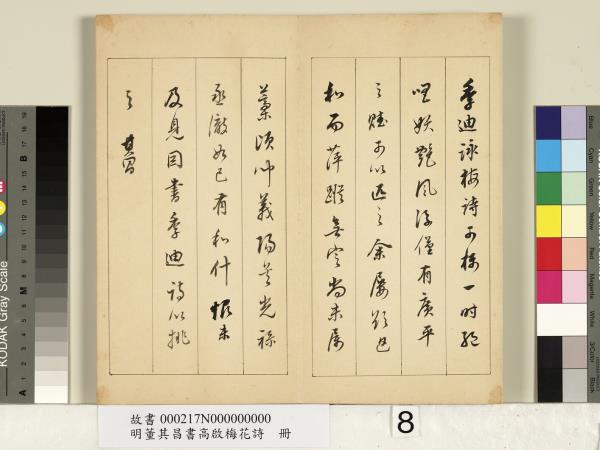 季迪詠梅詩可稱一時絕
唱妖艷風流僅有廣平
之賦可以匹之余屢欲追
和而萍蹤無定尚未屬
藁頃光祿
丞澂如已有和什恨未
及見因書季迪詩以挑
之 其昌
故書 000217N000000000
明董其昌書高啟梅花詩 冊
8
KODAK Gray Scale
A 1 2 3 4 5 6 M 8 9 10 11 12 13 14 15 B 17 18 19
Blue
Cyan
Green
Yellow
Red
Magenta
White
3/Color
Black